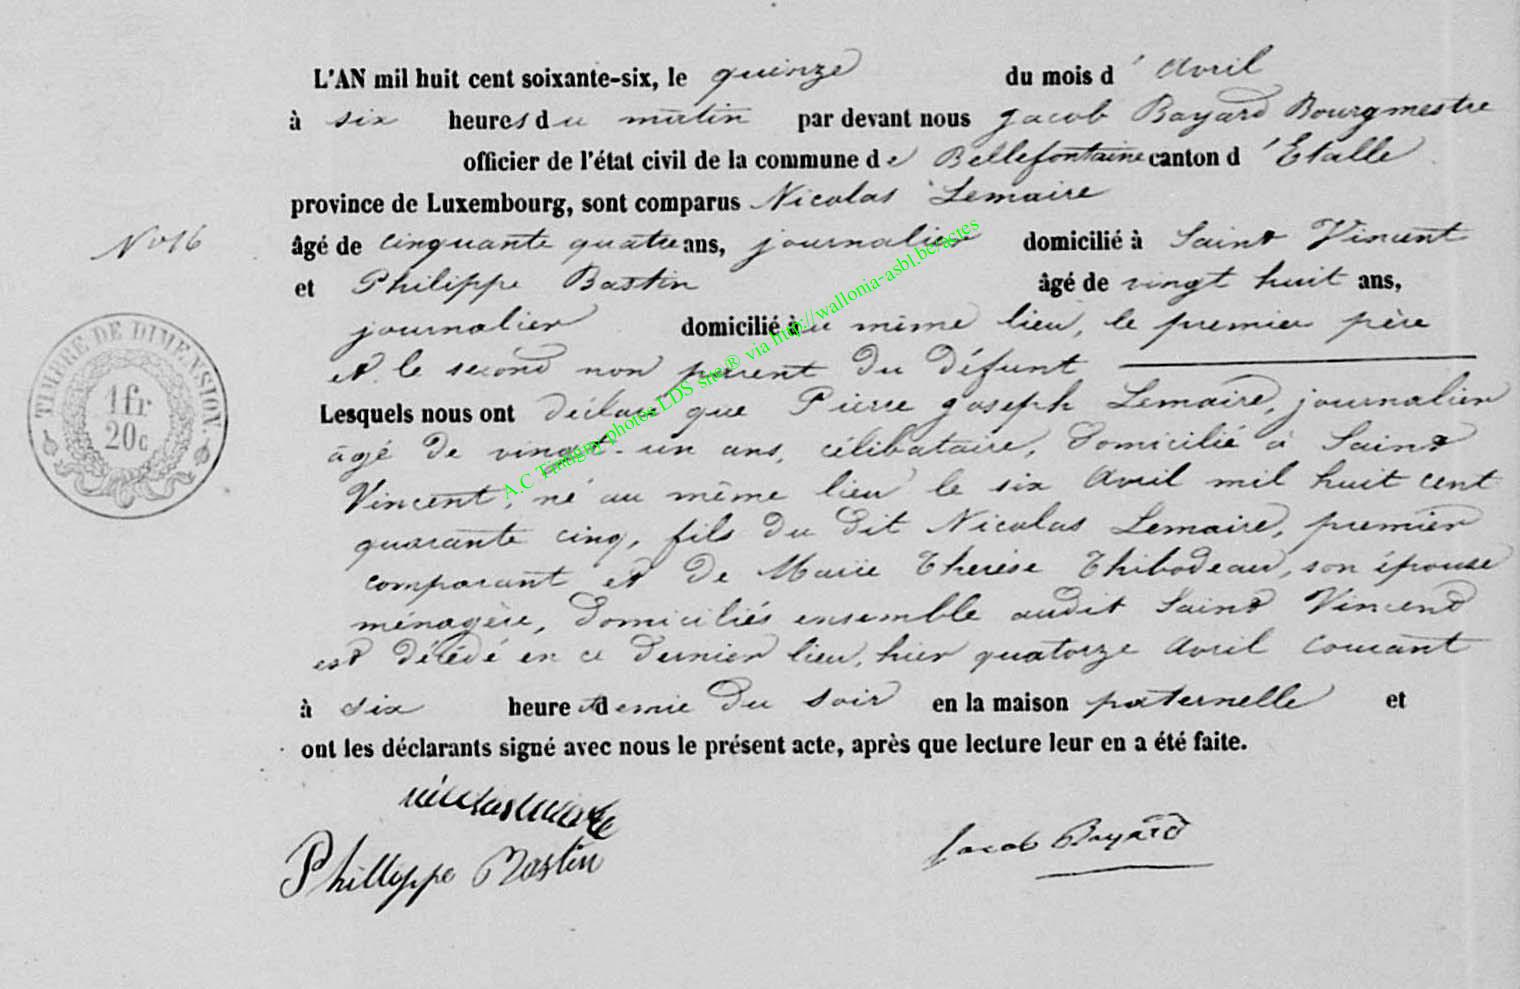 L'AN mil huit cent soixante-six, le quinze du mois d'Avril
à six heures du matin par devant nous Jacob Bayard Bourgmestre
officier de l'état civil de la commune de Bellefontaine canton d'Etalle
province de Luxembourg, sont comparus Nicolas Lemaire
No 16
âgé de cinquante quatre ans, journalier domicilié à Saint Vincent
et Philippe Bastin âgé de vingt huit ans,
journalier domicilié au même lieu, le premier père
et le second non parent du défunt
Lesquels nous ont déclaré que Pierre Joseph Lemaire, journalier
âgé de vingt-un ans, célibataire, domicilié à Saint
Vincent, né au même lieu le six Avril mil huit cent
quarante cinq, fils du dit Nicolas Lemaire, premier
comparant et de Marie Therèse Thibodeau, son épouse
ménagère, domiciliés ensemble audit Saint Vincent
est décédé en ce dernier lieu, hier quatorze Avril courant
à six heure et demie du soir en la maison paternelle et
ont les déclarants signé avec nous le présent acte, après que lecture leur en a été faite.
Philippe Bastin
Jacob Bayard
TIMBRE DE DIMENSION.
1 fr
20c
A.C Tintigny photos LDS site® via http://wallonia-asbl.be/actes